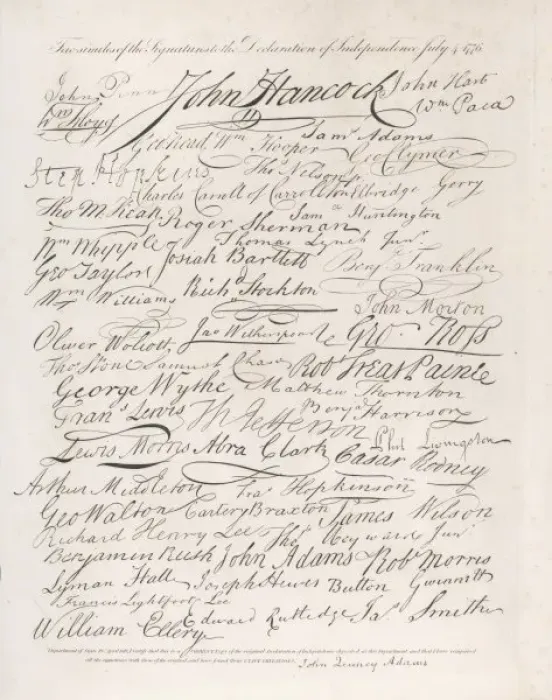 Facsimiles of the Signatures to the Declaration of Independence July 4 1776
John Penn John Hancock John Hart
Wm Floyd Wm Paca
Geo Read Wm Hooper Saml Adams
Step. Hopkins Thos Nelson jr Geo Clymer
Charles Carroll of Carrollton Elbridge Gerry
Tho M:Kean Roger Sherman Saml Huntington
Wm Whipple Thomas Lynch Junr
Geo Taylor Josiah Bartlett Benj Franklin
Wm Williams Richd Stockton John Morton
Oliver Wolcott Jno Witherspoon Geo. Ross
Thos Stone Samuel Chase Robt Treat Paine
George Wythe Matthew Thornton
Frans Lewis Th Jefferson Benj Harrison
Lewis Morris Abra Clark Phil. Livingston
Cæsar Rodney
Arthur Middleton Fras Hopkinson
Geo Walton Carter Braxton James Wilson
Richard Henry Lee Thos Heyward Junr
Benjamin Rush John Adams Robt Morris
Lyman Hall Joseph Hewes Button Gwinnett
Francis Lightfoot Lee
William Ellery Edward Rutledge Jas Smith
Department of State
certify that this is a CORRECT copy of the original Declaration of Independence deposited at this Department and that I have compared
all the signatures with those of the original and have found them
John Quincy Adams